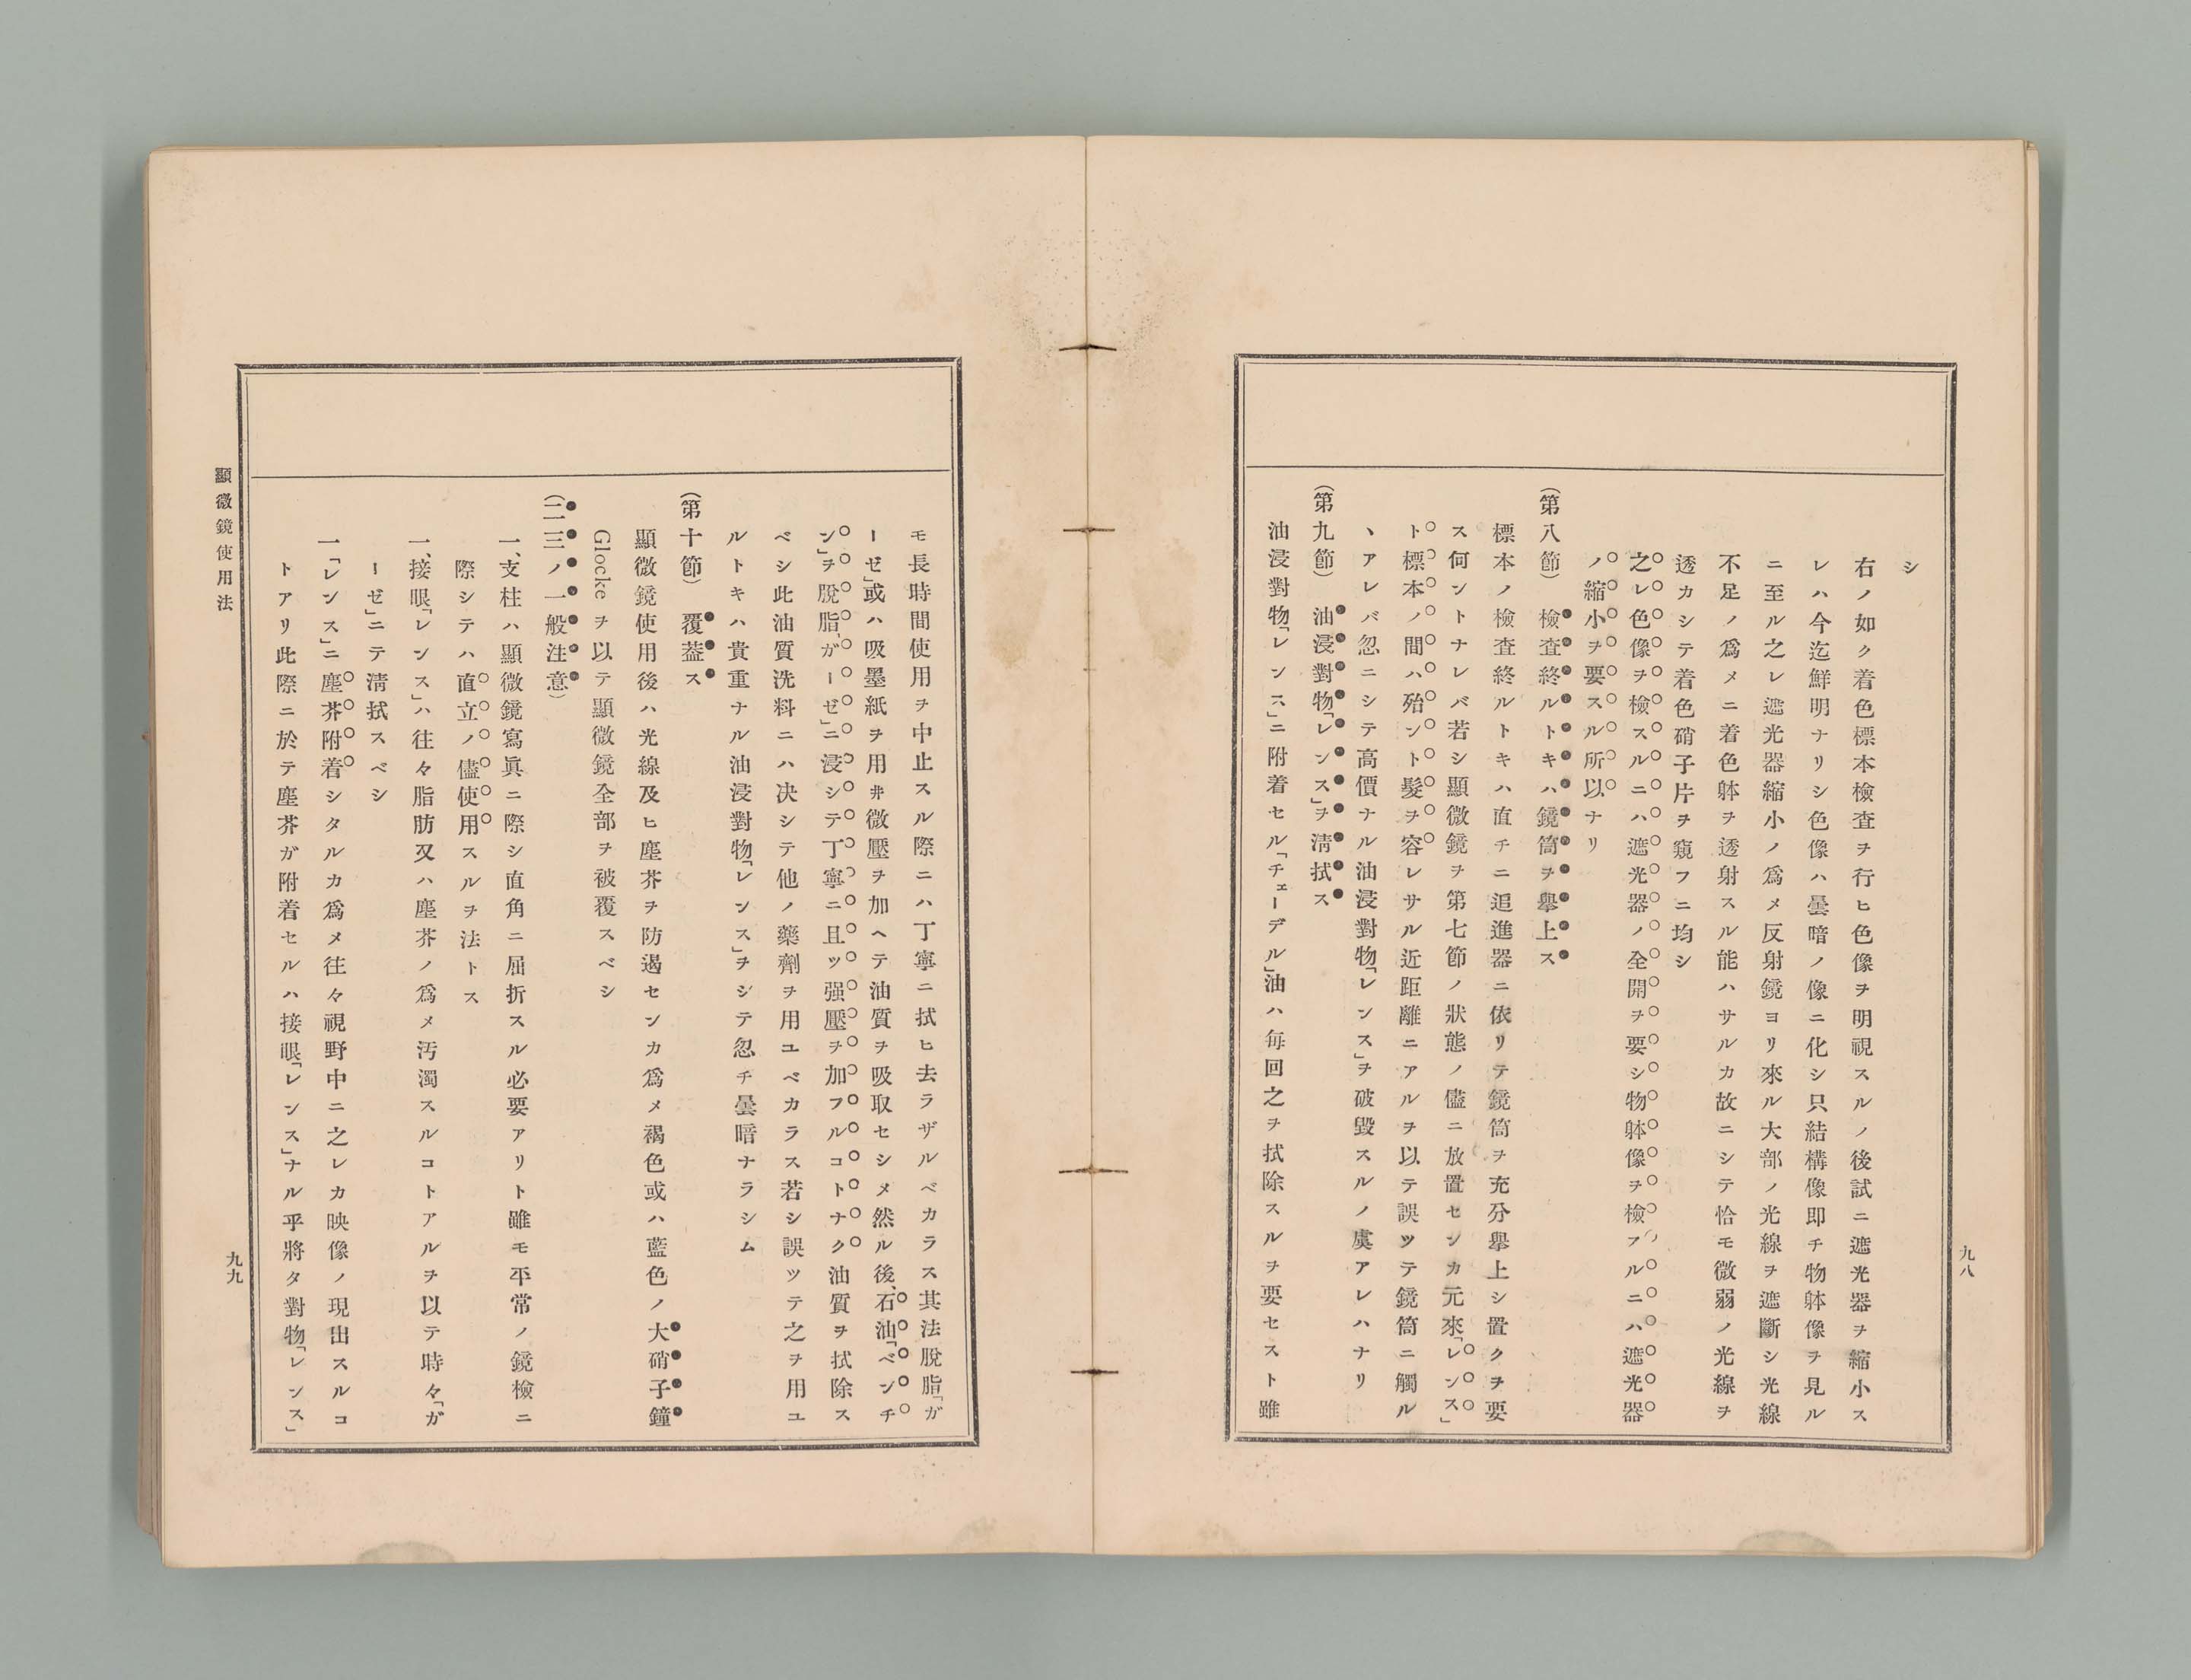 シ
右ノ如ク着色標本檢査ヲ行ヒ色像ヲ明視スルノ後試ニ遮光器ヲ縮小ス
レハ今迄鮮明ナリシ色像ハ曇暗ノ像ニ化シ只結構像即チ物躰像ヲ見ル
ニ至ル之レ遮光器縮小ノ爲メ反射鏡ヨリ來ル大部ノ光線ヲ遮斷シ光線
不足ノ爲メニ着色躰ヲ透射スル能ハサルカ故ニシテ恰モ微弱ノ光線ヲ
透カシテ着色硝子片ヲ窺フニ均シ
之レ色像ヲ檢スルニハ遮光器ノ全開ヲ要シ物躰像ヲ檢フルニハ遮光器
ノ縮小ヲ要スル所以ナリ
(第八節) 檢査終ルトキハ鏡筒ヲ擧上ス
標本ノ檢査終ルトキハ直チニ追進器ニ依リテ鏡筒ヲ充分擧上シ置クヲ要
ス何ントナレバ若シ顯微鏡ヲ第七節ノ狀態ノ儘ニ放置センカ元來「レンス」
ト標本ノ間ハ殆ント髮ヲ容レサル近距離ニアルヲ以テ誤ツテ鏡筒ニ觸ル
ヽアレバ忽ニシテ高價ナル油浸對物「レンス」ヲ破毀スルノ虞アレハナリ
(第九節) 油浸對物「レンス」ヲ淸拭ス
油浸對物「レンス」ニ附着セル「チェーデル」油ハ每回之ヲ拭除スルヲ要セスト雖
九八
モ長時間使用ヲ中止スル際ニハ丁寧ニ拭ヒ去ラザルベカラス其法脫脂「ガ
ーゼ」或ハ吸墨紙ヲ用ヰ微壓ヲ加ヘテ油質ヲ吸取セシメ然ル後、石油「ベンチ
ン」ヲ脫脂「ガーゼ」ニ浸シテ丁寧ニ且ツ强壓ヲ加フルコトナク油質ヲ拭除ス
ベシ此油質洗料ニハ決シテ他ノ藥劑ヲ用ユベカラス若シ誤ツテ之ヲ用ユ
ルトキハ貴重ナル油浸對物「レンス」ヲシテ忽チ曇暗ナラシム
(第十節) 覆蓋ス
顯微鏡使用後ハ光線及ヒ塵芥ヲ防遏センカ爲メ褐色或ハ藍色ノ大硝子鐘
Glocke ヲ以テ顯微鏡全部ヲ被覆スベシ
(二三ノ一般注意)
一、支柱ハ顯微鏡寫眞ニ際シ直角ニ屈折スル必要アリト雖モ平常ノ鏡檢ニ
際シテハ直立ノ儘使用スルヲ法トス
一、接眼「レンス」ハ往々脂肪又ハ塵芥ノ爲メ汚濁スルコトアルヲ以テ時々「ガ
ーゼ」ニテ淸拭スベシ
一「レンス」ニ塵芥附着シタルカ爲メ往々視野中ニ之レカ映像ノ現出スルコ
トアリ此際ニ於テ塵芥ガ附着セルハ接眼「レンス」ナル乎將タ對物「レンス」
顯微鏡使用法
九九